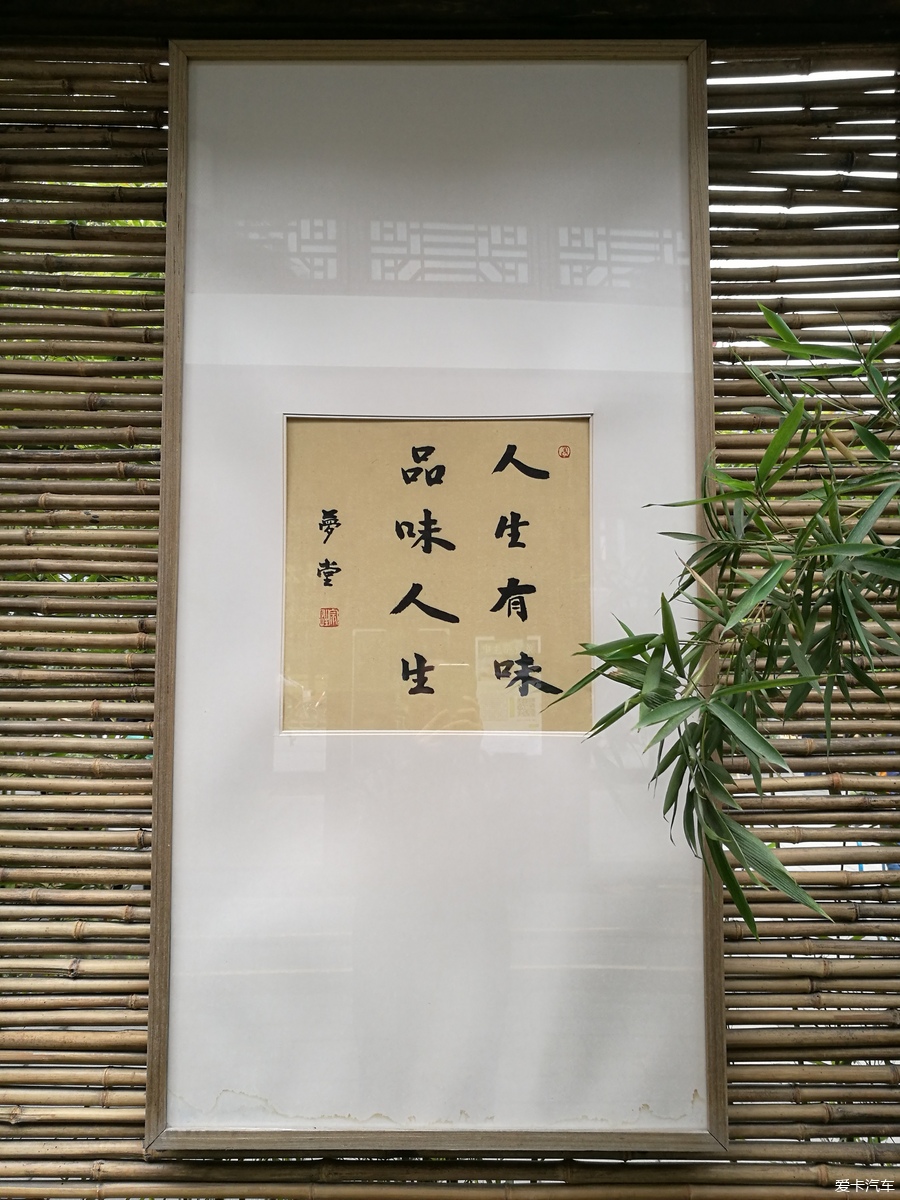 人生有味
品味人生
夢堂
爱卡汽车